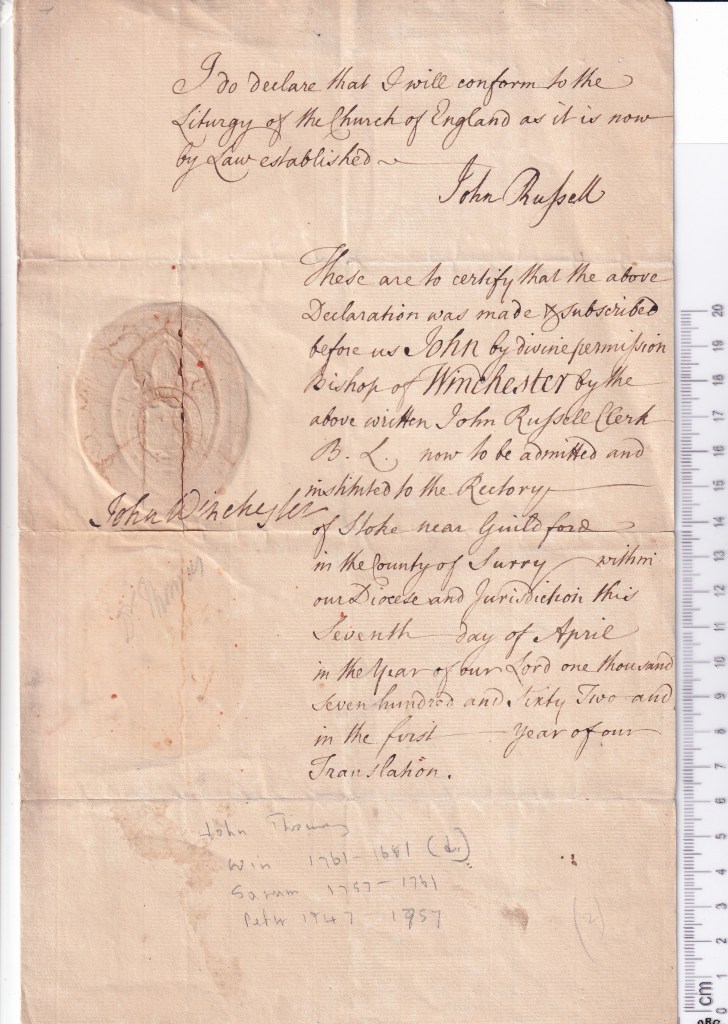 I do declare that I will conform to the
Liturgy of the Church of England as it is now
by Law established
John Russell
These are to certify that the above
Declaration was made & subscribed
before us John by divine permission
Bishop of Winchester by the
above written John Russell Clerk
B. L. now to be admitted and
instituted to the Rectory
of Stoke near Guildford
in the County of Surry within
our Diocese and Jurisdiction this
Seventh day of April
in the Year of our Lord one thousand
seven hundred and Sixty Two and
in the first Year of our
Translation.
John Winchester
Thomas
John Thomas
Win 1761-1681
Sarum 1757-1761
Petr 1747-1757
(12)
20
19
18
17
16
15
14
13
12
11
10
9
8
7
6
5
4
3
2
1
0
cm